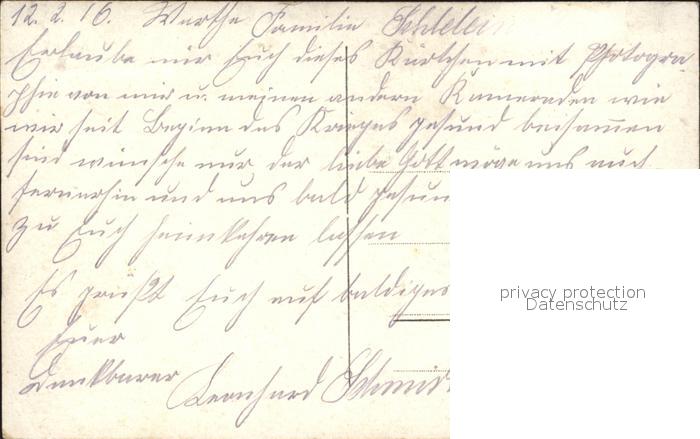 12. 2. 16. Werthe Familie Schlelein
Erlaube mir Euch dieses Kärtchen mit Photogra
phie von mir u. meinen andern Kameraden wie
wir seit Beginn des Krieges gesund beisammen
sind wünsche nur der liebe Gott möge uns auch
fernerhin und uns bald gesun
zu Euch heimkehren lassen
Es grüßt Euch auf baldiges
Euer
dankbarer Leonhard Schmid
privacy protection
Datenschutz